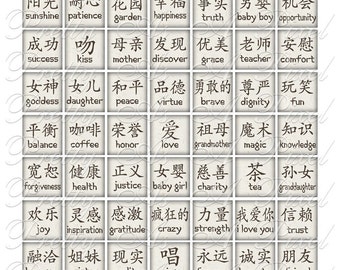 阳光 耐心 花园 幸福 事实 男婴 机会
sunshine patience garden happiness truth baby boy opportunity
成功 吻 母亲 发现 优美 老师 安慰
success kiss mother discover grace teacher comfort
女神 女儿 和平 品德 勇敢的 尊严 玩笑
goddess daughter peace virtue brave dignity fun
平衡 咖啡 荣誉 爱 祖母 魔术 知识
balance coffee honor love grandmother magic knowledge
宽恕 健康 正义 女婴 慈善 茶 孙女
forgiveness health justice baby girl charity tea granddaughter
欢乐 灵感 感激 疯狂的 力量 我爱你 信赖
joy inspiration gratitude crazy strength i love you trust
融洽 姐妹 现实 唱 永远 诚实 朋友